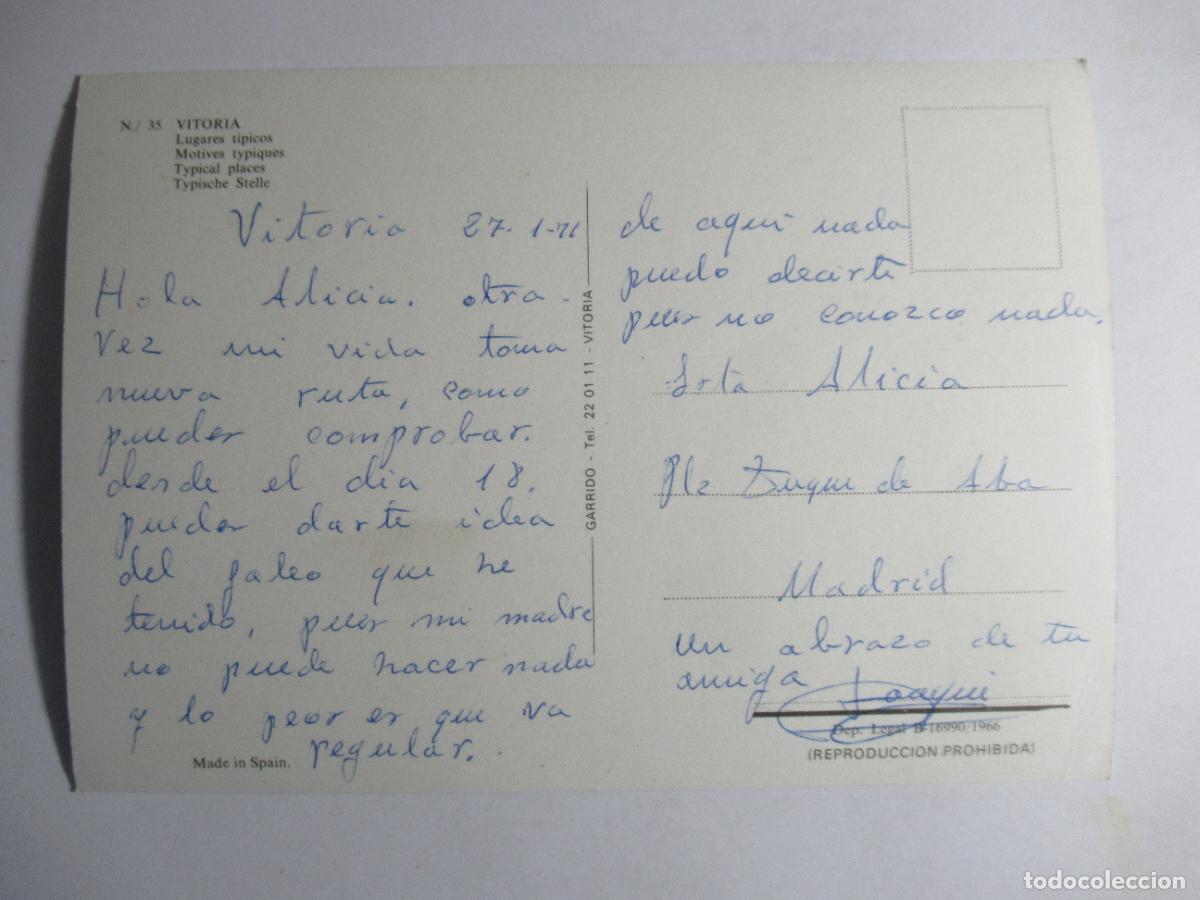 N./ 35 VITORIA
Lugares típicos
Motives typiques
Typical places
Typische Stelle
Vitoria 27-1-71
Hola Alicia. otra
vez mi vida toma
nueva ruta, como
puedes comprobar.
desde el dia 18.
puedes darte idea
del jaleo que he
tenido, pues mi madre
no puede hacer nada
y lo peor es que va
regular.
Made in Spain.
GARRIDO - Tel. 22 01 11 - VITORIA
de aqui nada
puedo decirte
pues no conozco nada.
Srta Alicia
Plz Duque de Alba
Madrid
un abrazo de tu
amiga Joaqui
Dep. Legal B-16990/1966
(REPRODUCCION PROHIBIDA)
todocoleccion